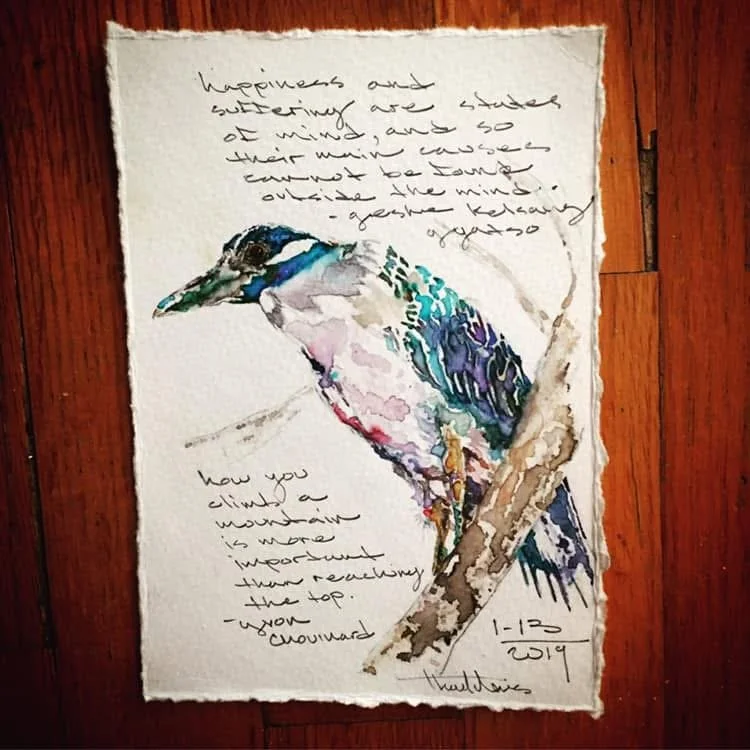 happiness and
suffering are states
of mind, and so
their main causes
cannot be found
outside the mind..
- geshe kelsang
gyatso
how you
climb a
mountain
is more
important
than reaching
the top.
- yvon
chouinard
1-13
2019